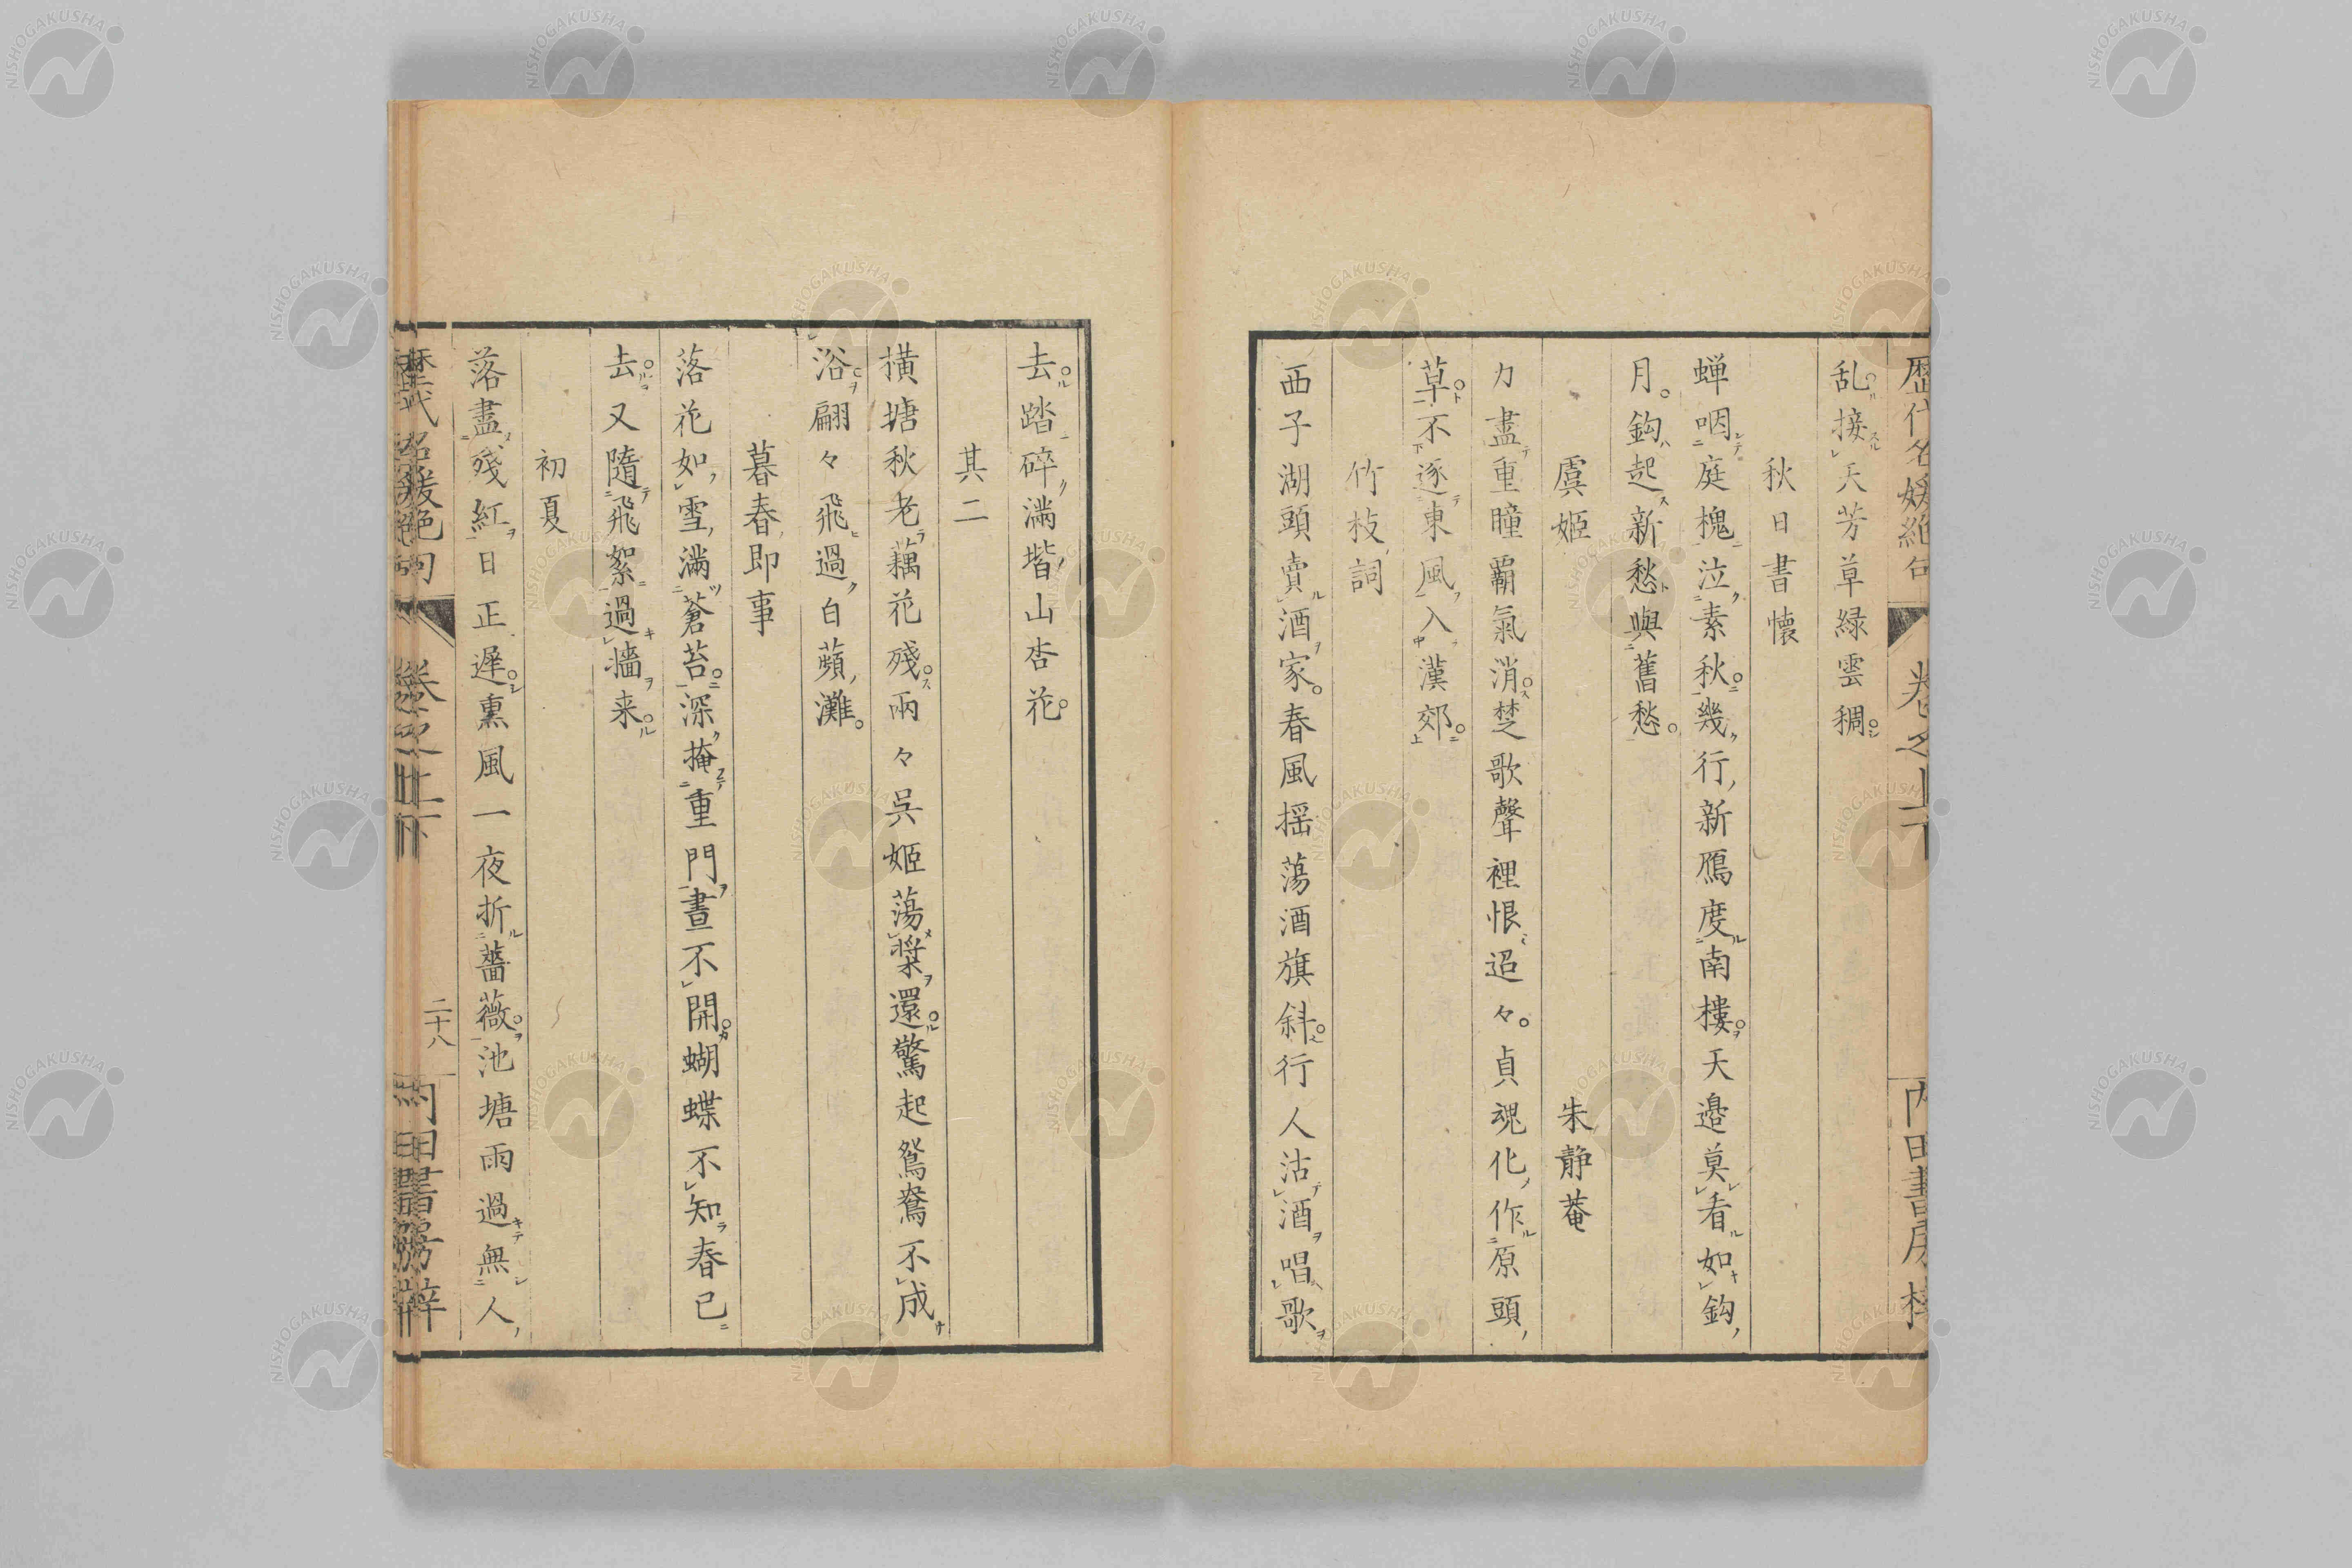 歴代名媛絶句 卷之上下 内田書房梓
乱接天芳草緑雲稠
秋日書懐
蝉咽庭槐泣素秋幾行新鴈度南樓天邉莫看如鈎
月鈎起新愁與舊愁
虞姬 朱静菴
力盡重瞳覇氣消楚歌聲裡恨迢々貞魂化作原頭
草不逐東風入漢郊
竹枝詞
西子湖頭賣酒家春風揺蕩酒旗斜行人沽酒唱歌
去踏碎滿堦山杏花
其二
横塘秋老藕花殘兩々呉姬蕩槳還驚起鴛鴦不成
浴翩々飛過白蘋灘
暮春即事
落花如雪滿蒼苔深掩重門晝不開蝴蝶不知春已
去又隨飛絮過墻来
初夏
落盡殘紅日正遲熏風一夜折薔薇池塘雨過無人
二十八
NISHOGAKUSHA